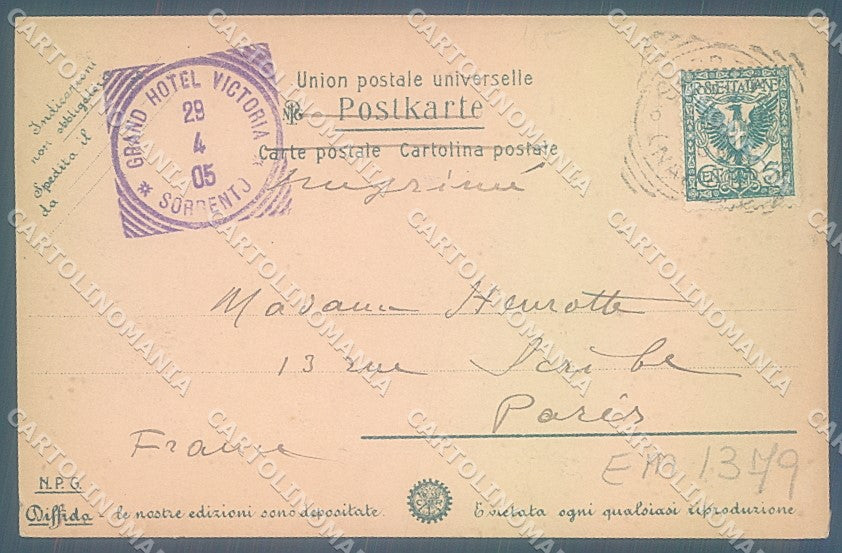 Indicazioni
non obbligate
Spedita il
da
GRAND HOTEL VICTORIA
29
4
05
* SORRENTO *
Union postale universelle
Postkarte
Carte postale Cartolina postale
Imprimé
POSTE ITALIANE
CENT. 5
Madame Henrotte
13 rue Scribe
Paris
France
EM 1379
N.P.G.
Diffida - le nostre edizioni sono depositate.
È vietata ogni qualsiasi riproduzione
CARTOLINOMANIA